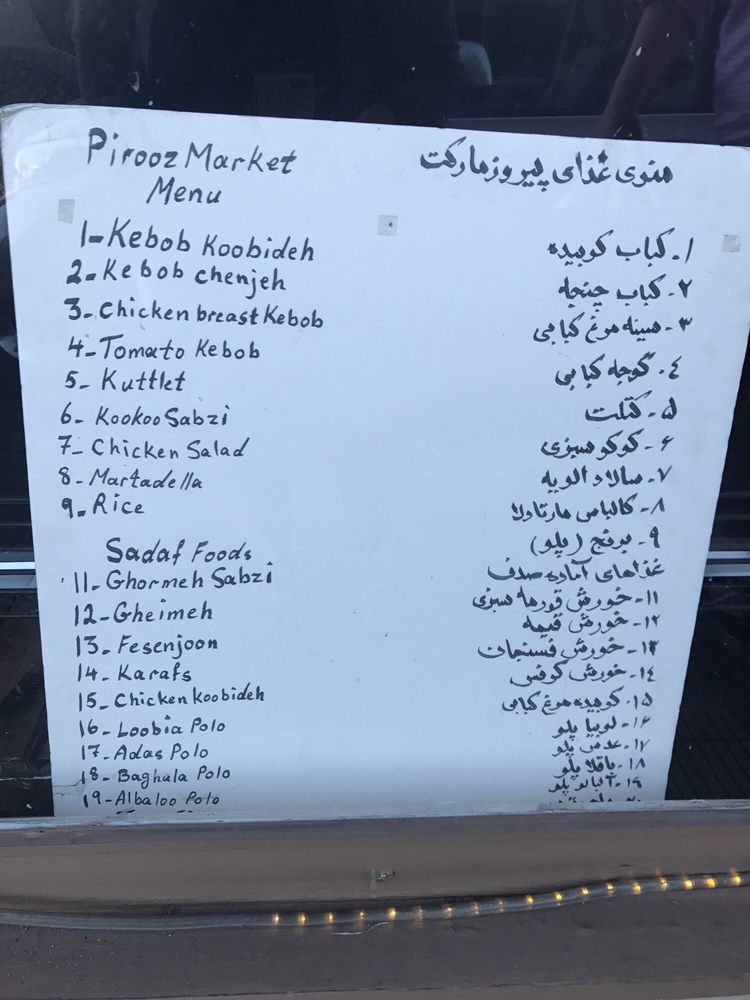 Pirooz Market
Menu
1- Kebob Koobideh
2- Kebob chenjeh
3- Chicken breast Kebob
4- Tomato Kebob
5- Kuttlet
6- Kookoo Sabzi
7- Chicken Salad
8- Martadella
9- Rice
Sadaf Foods
11- Ghormeh Sabzi
12- Gheimeh
13- Fesenjoon
14- Karafs
15- Chicken koobideh
16- Loobia Polo
17- Adas Polo
18- Baghala Polo
19- Albaloo Polo
منوی غذای پیروز مارکت
۱- کباب کوبیده
۲- کباب چنجه
۳- سینه مرغ کبابی
۴- گوجه کبابی
۵- کتلت
۶- کوکو سبزی
۷- سالاد الویه
۸- کالباس مارتادلا
۹- برنج (پلو)
غذاهای آماده صدف
۱۱- خورش قورمه سبزی
۱۲- خورش قیمه
۱۳- خورش فسنجان
۱۴- خورش کرفس
۱۵- کوبیده مرغ کبابی
۱۶- لوبیا پلو
۱۷- عدس پلو
۱۸- باقلا پلو
۱۹- آلبالو پلو